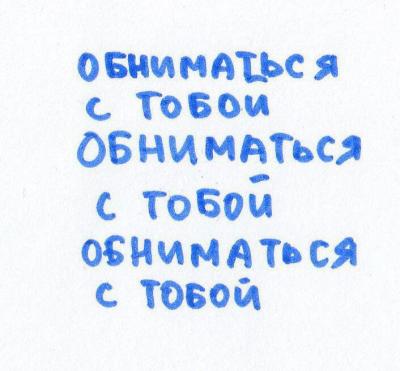 ОБНИМАТЬСЯ
С ТОБОЙ
ОБНИМАТЬСЯ
С ТОБОЙ
ОБНИМАТЬСЯ
С ТОБОЙ